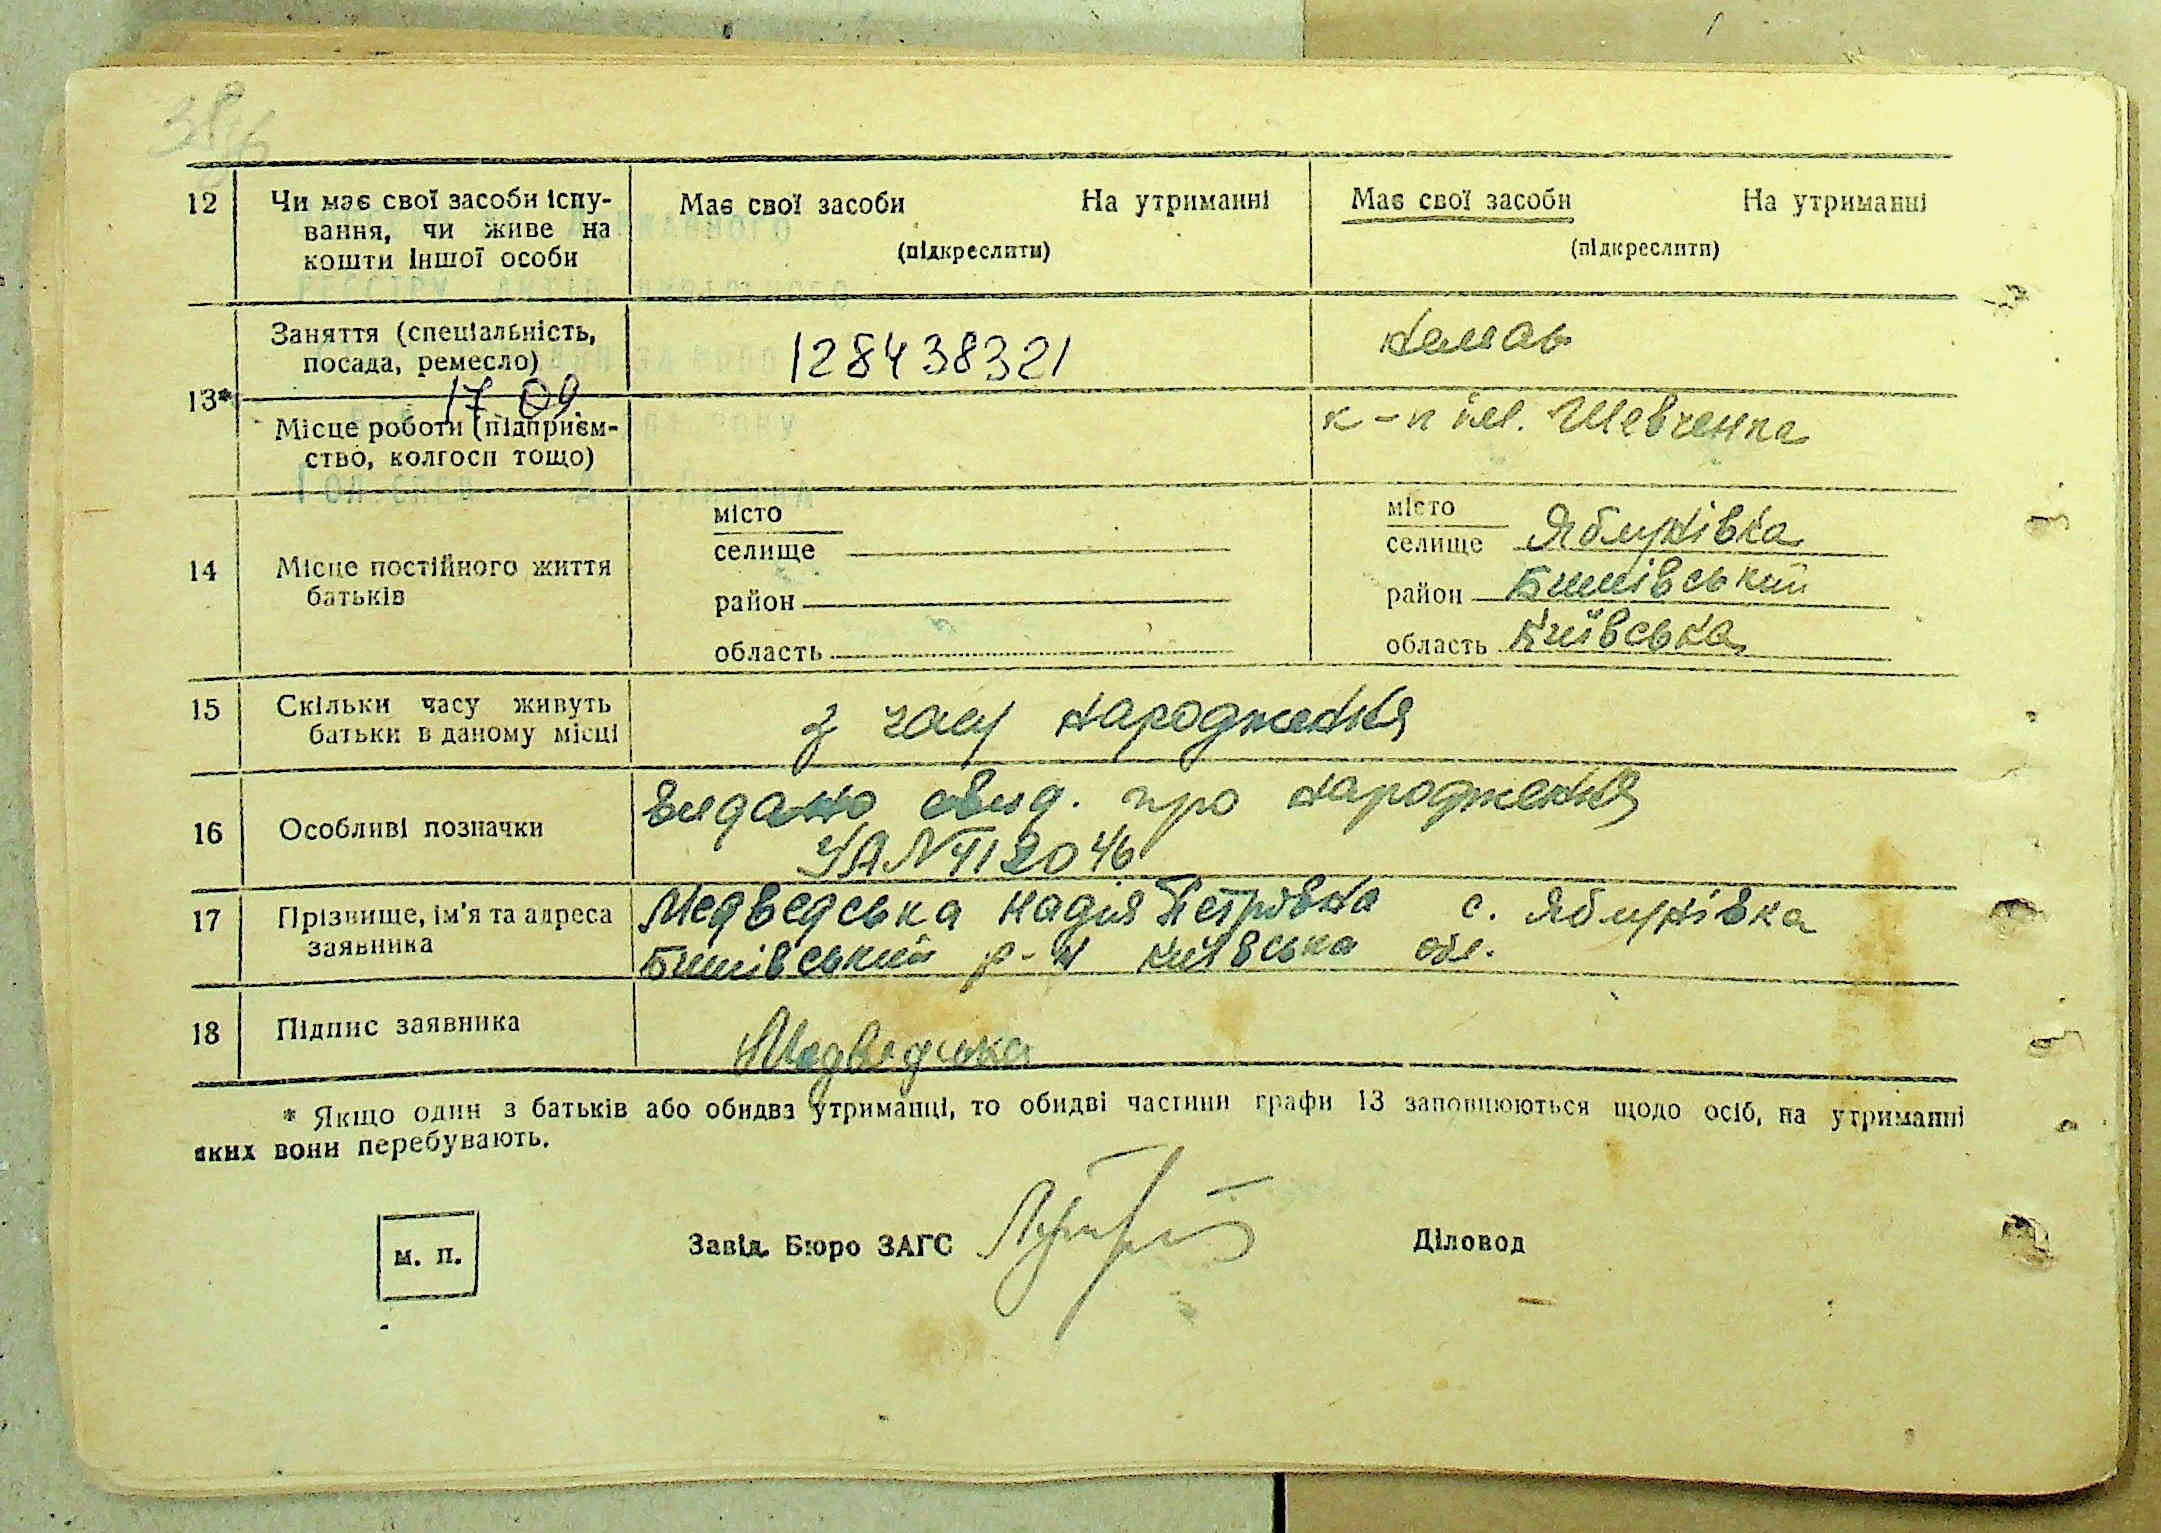 12 Чи має свої засоби існу-
вання, чи живе на
кошти іншої особи
Має свої засоби На утриманні
(підкреслити)
Має свої засоби На утриманні
(підкреслити)
13*
Заняття (спеціальність,
посада, ремесло)
128438321
17 09
Місце роботи (підприєм-
ство, колгосп тощо)
к-п ім. Шевченка
14 Місце постійного життя
батьків
місто
селище
район
область
місто
селище Яблунівка
район Бишівський
область Київська
15 Скільки часу живуть
батьки в даному місці
з часу народження
16 Особливі позначки
видано свид. про народження
УА № 412046
17 Прізвище, ім'я та адреса
заявника
Медведська Надія Петрівна с. Яблунівка
Бишівський р-н Київська обл.
18 Підпис заявника
Медведська
* Якщо один з батьків або обидва утриманці, то обидві частини графи 13 заповнюються щодо осіб, на утриманні
яких вони перебувають.
м. п.
Завід. Бюро ЗАГС
Діловод